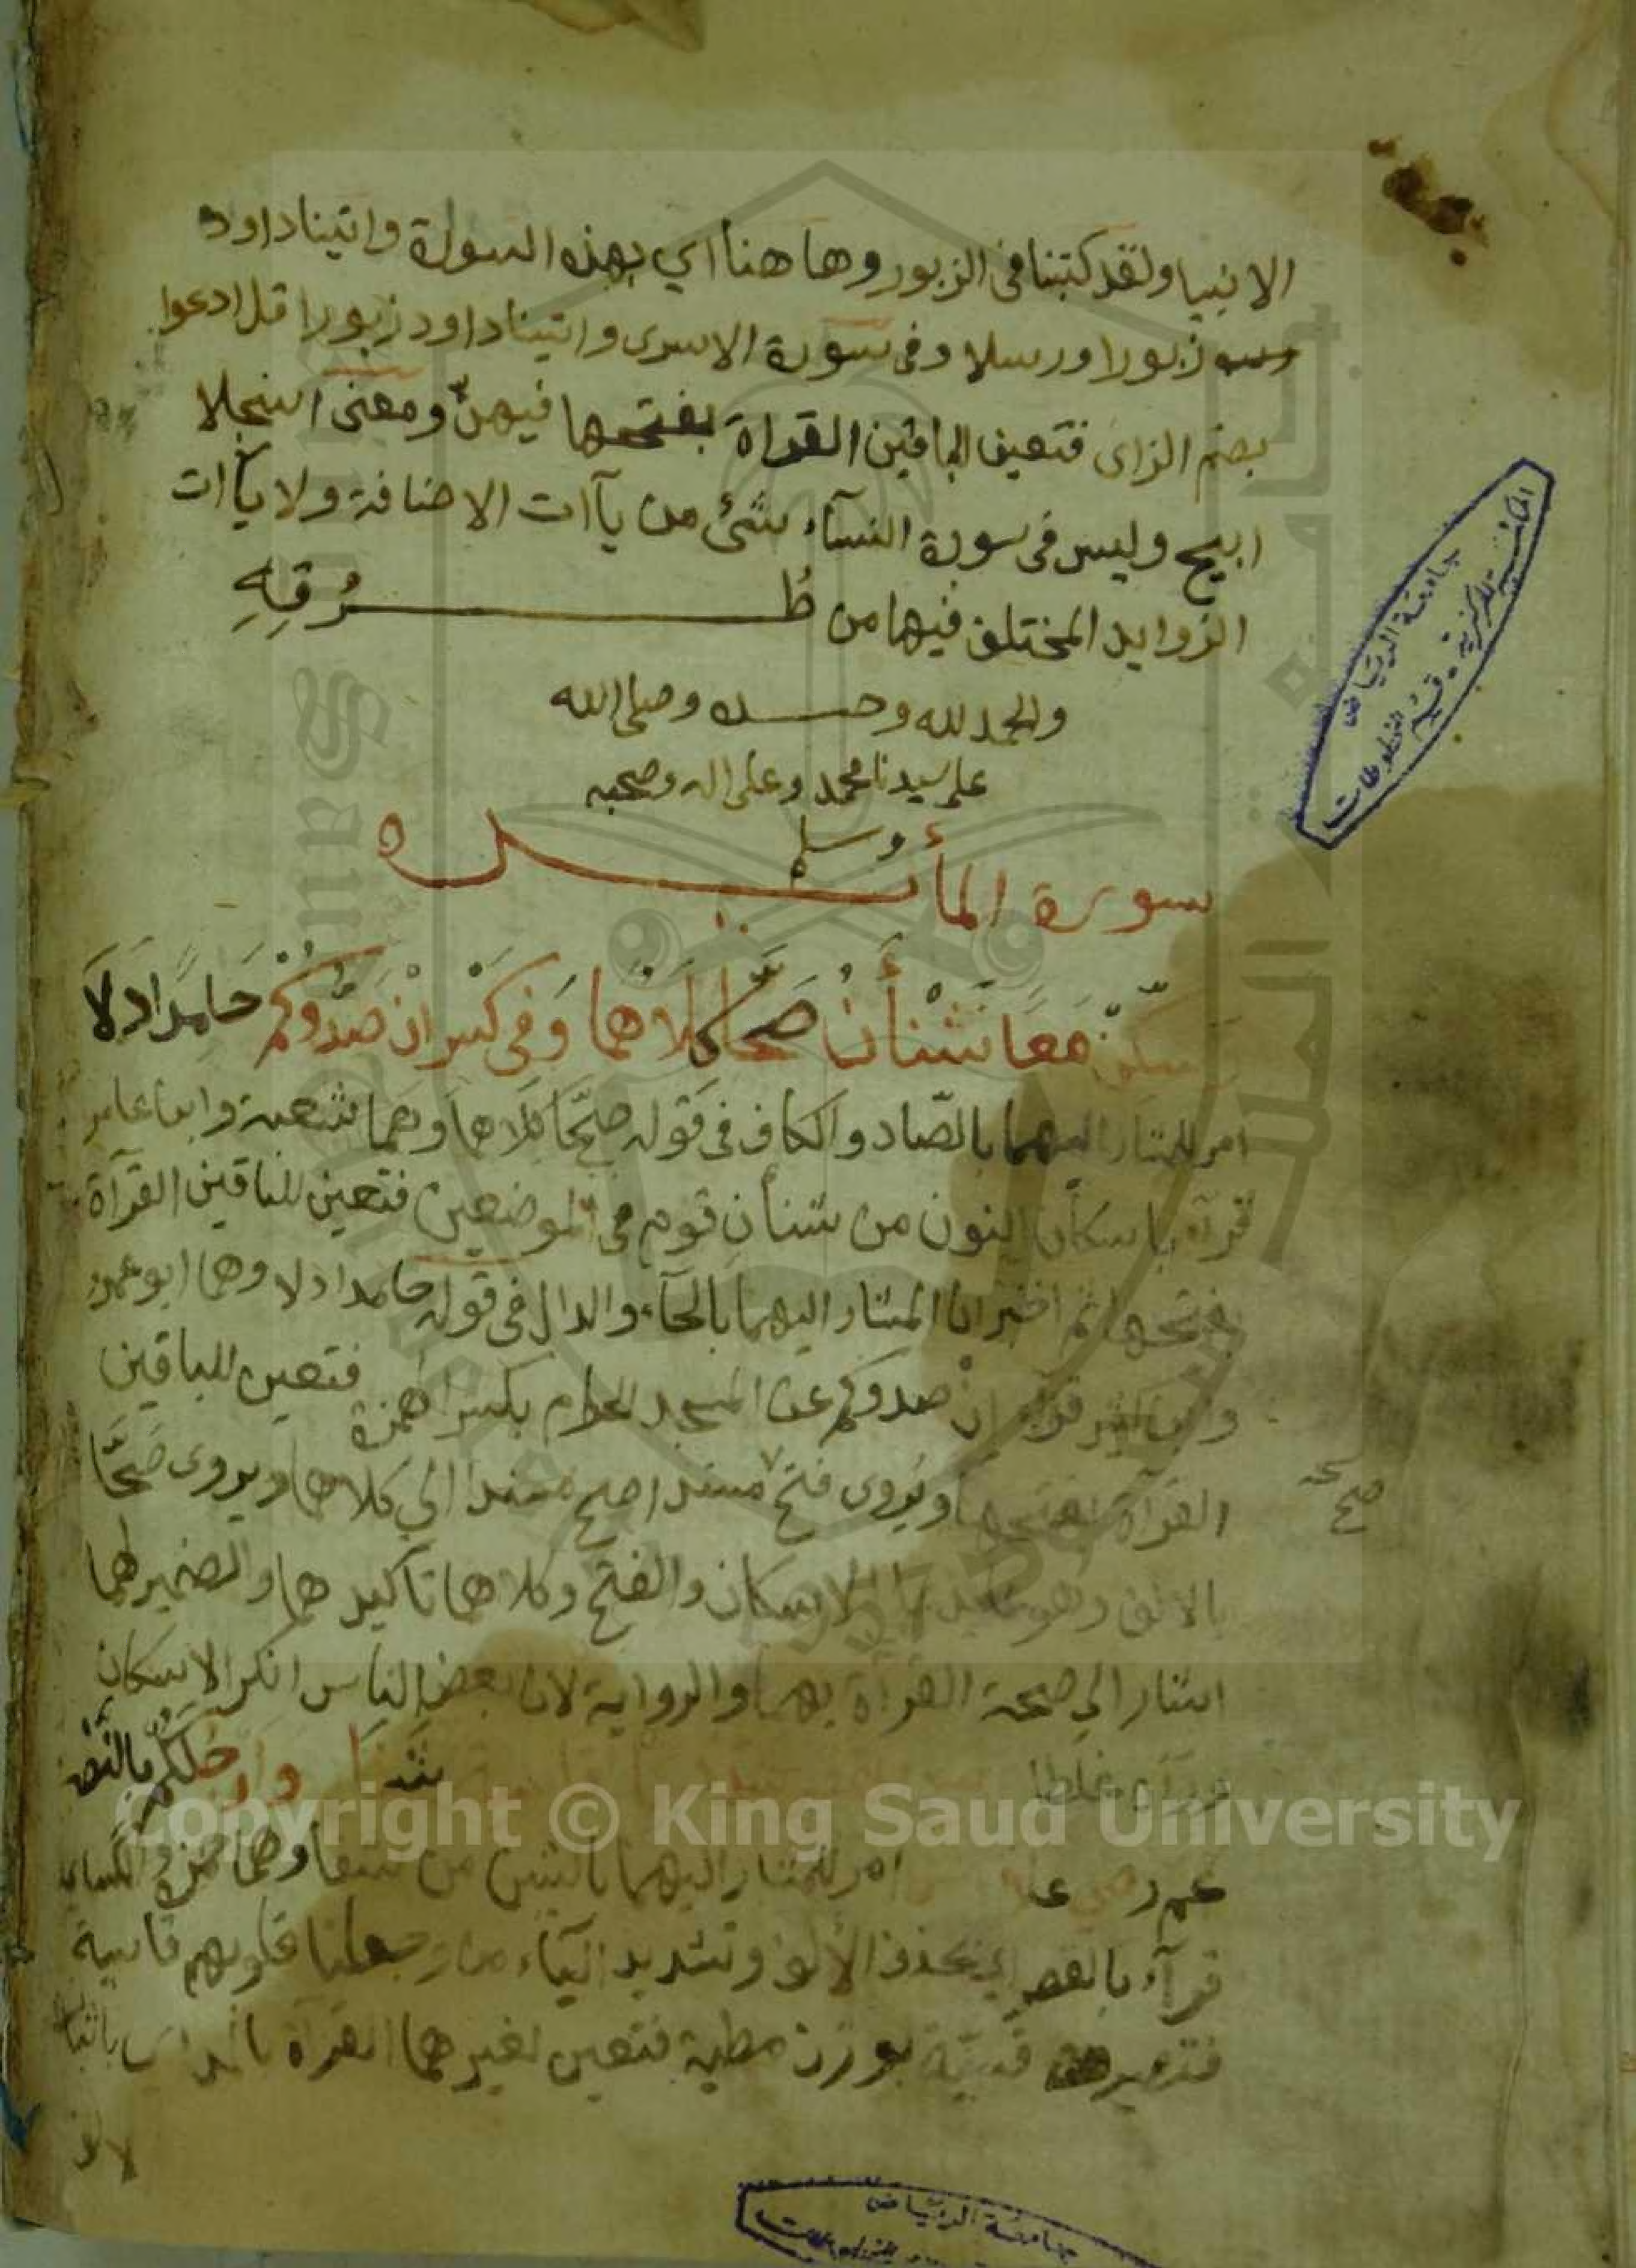 الانبيا ولقد كتبنا فى الزبور وها هنا اي بهذه السورة واتينا داود
زبورا ورسلا وفى سورة الاسرى واتينا داود زبورا قل ادعوا
بضم الزاى فتعين الباقين القراة بفتحها فيهن ومعنى اسجلا
ابيح وليس فى سورة النسآء شئ من يآات الاضافة ولا يآات
الزوايد المختلف فيها من طُرُقِهِ
والحمد لله وحده وصلى الله
على سيدنا محمد وعلى اله وصحبه
وسلم
سورة المأئدة
وسكن معا شنأن صحا كلاهما وفى كسر ان صدوكم حامد دلا
امر للمشار اليهما بالصاد والكاف فى قوله صحّا كلاهما وهما شعبة وابن عامر
قرآه باسكان النون من شنأن قوم فى الموضعين فتعين للباقين القرآة
بفتحها ثم اخبر ان المشار اليهما بالحآء والدال فى قوله حامد دلا وهما ابو عمرو
وابن كثير قرآ ان صدوكم عن المسجد الحرام بكسر الهمزة فتعين للباقين
القرآة بفتحها ويروى فتح مسندا صح مسندا الى كلاهما ويروى صحّا
صح صحه
بالالف وهو الاسكان والفتح وكلاهما تاكيد هما والضمير لهما
اشار الى صحة القرآة بهما والرواية لان بعض الناس انكر الاسكان
غلطا شفا وارجلكم بالنصب
عم رضى علا امر للمشار اليهما بالشين من شفا وهما حمزة والكساي
قرآء بالقصر اي بحذف الالف وتشديد اليآء من وجعلنا قلوبهم قاسية
فتصير قسيّة بوزن مطية فتعين لغيرهما القرآة بالمد اى باثبات
الالف
المكتبة المركزية - قسم المخطوطات
جامعة الرياض
جامعة الرياض
Copyright © King Saud University
1957